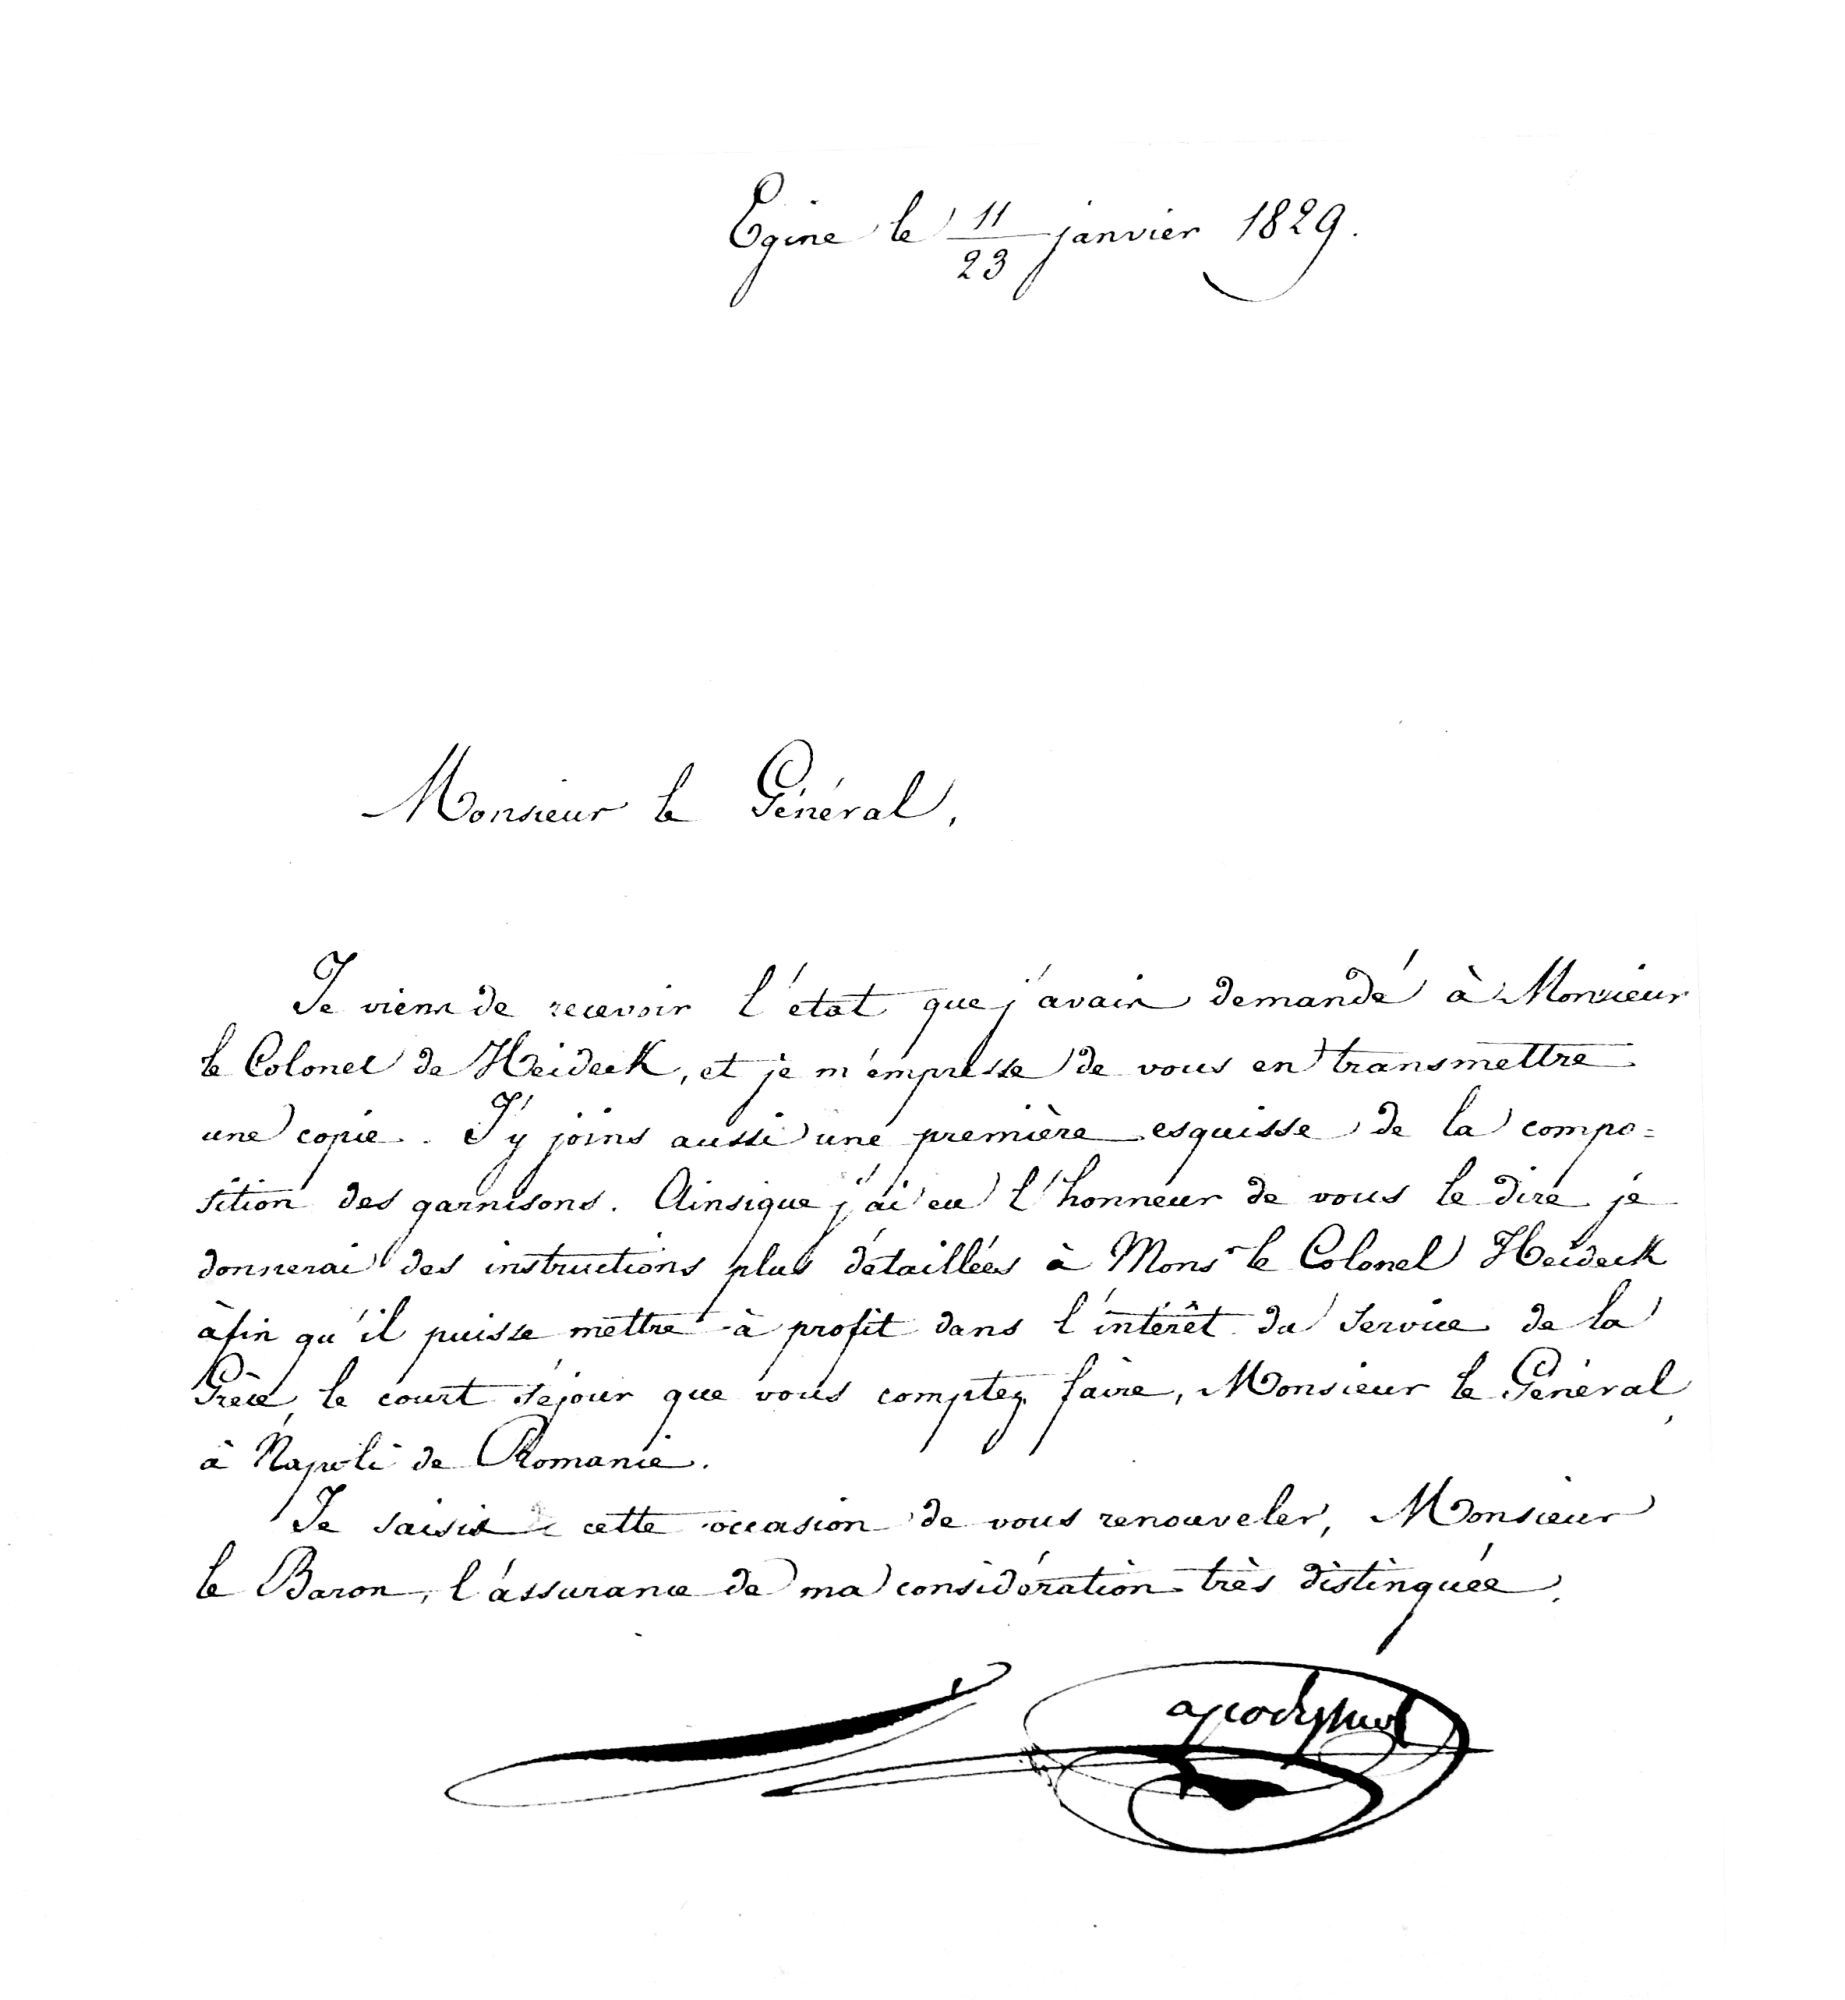 Egine le 11/23 janvier 1829.
Monsieur le Général,
Je viens de recevoir l'état que j'avais demandé à Monsieur
le Colonel de Heideck, et je m'empresse de vous en transmettre
une copie. J'y joins aussi une première esquisse de la compo=
sition des garnisons. Ainsique j'ai eu l'honneur de vous le dire je
donnerai des instructions plus détaillées à Monsr le Colonel Heideck
àfin qu'il puisse mettre à profit dans l'intérêt du service de la
Grèce, le court séjour que vous comptez faire, Monsieur le Général,
à Napoli de Romanie.
Je saisis cette occasion de vous renouveler, Monsieur
le Baron, l'assurance de ma considération très distinguée.